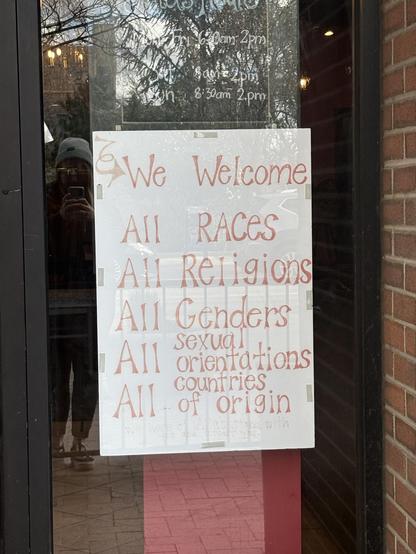 Fri 2pm
2pm
8:30am 2pm
We Welcome
All RACes
All Religions
All Genders
All sexual orientations
All countries of origin